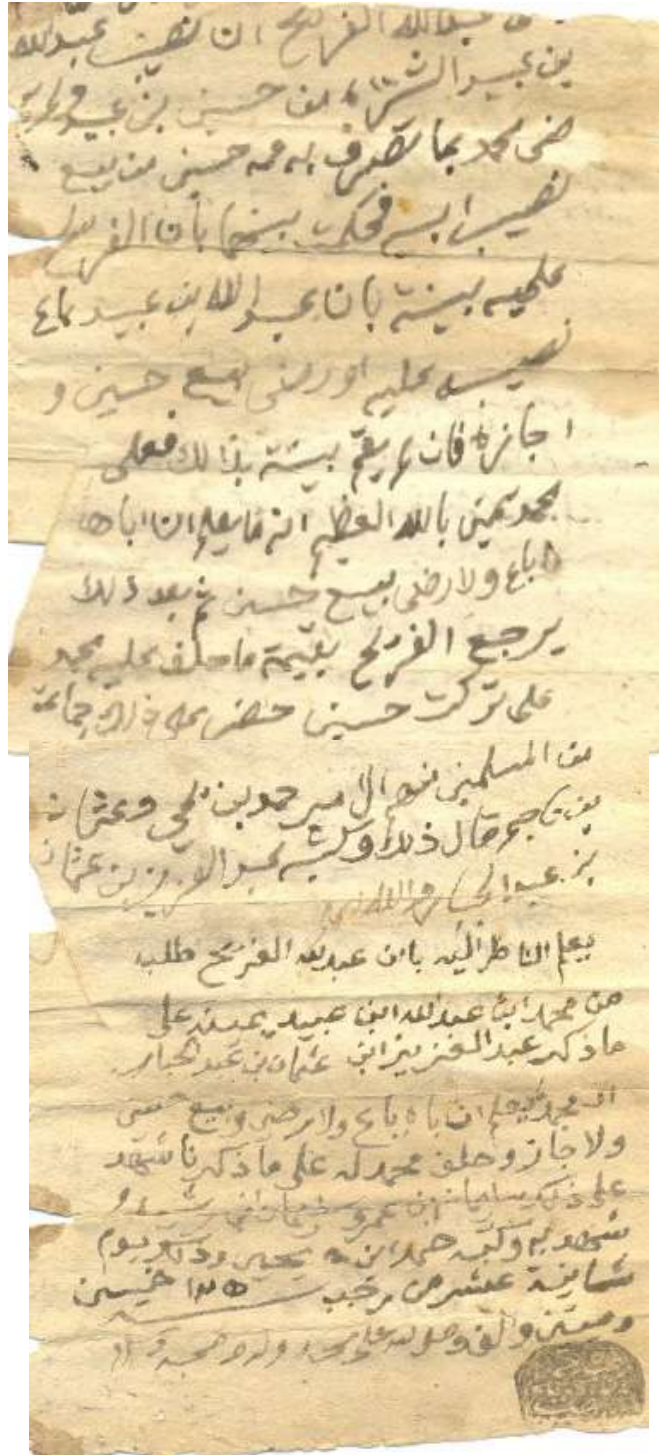 عبدالله الفريح ان نصيب عبدالله
بن عبيد الشراء من حسين بن عبيد
ضى محمد بما تصرف به عمه حسين من بيع
نصيب ابيه فحكمت بينهما بان الفريح
عليه بينة بان عبد الله بن عبيد باع
نصيبه عليه او رضى ببيع حسين و
اجازه فان لم يقم بينة بذالك فعلى
محمد يمين بالله العظيم انه ما يعلم ان اباه
باع ولا رضى ببيع حسين ثم بعد ذلك
يرجع الفريح بقيمة ما حلف عليه محمد
على تركت حسين حضر على ذلك جماعة
من المسلمين منهم الامير حمد بن يحي وعثمان
بن قال ذلك وكتبه عبد العزيز بن عثمان
بن عبد الجبار
يعلم الناظر اليه بان عبدالله الفريح طلب
من محمد ابن عبدالله ابن عبيد يمينه على
ما ذكر عبد العزيز ابن عثمان بن عبد الجبار
ان محمد يعلم ان باه باع ولا رضى وبيع حسين
ولا جاز وحلف محمد على ما ذكرنا شهد
على ذلك سليمان ابن
شهد به وكتبه حمد ابن يحيى وذلك يوم
ثمانية عشر من رجب سنه خمسين
وميتين والف وصلى الله على محمد واله وصحبه